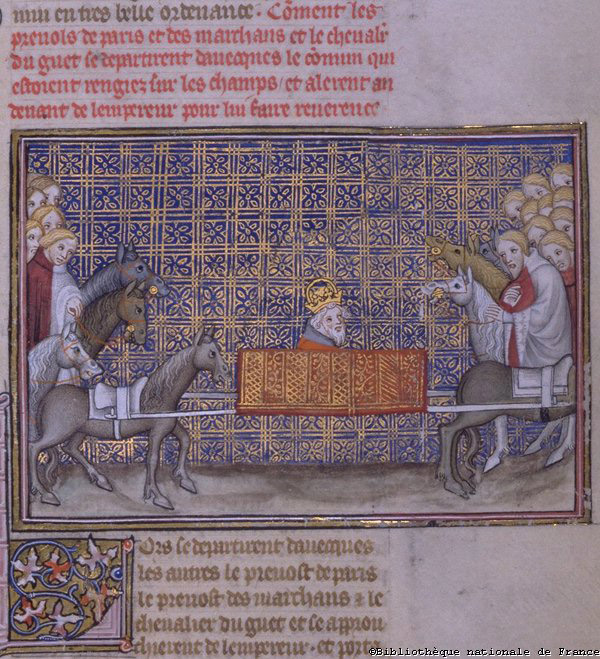 mui en tres belle ordenance. Cõment les
prevols de paris et des marchans et le chevalr
du guet se departirent davecques le cõmun qui
estoient rengiez sur les champs / et alerent au
devant de lempereur pour lui faire reverence
Ors se departirent davecques
les autres le prevost de paris
le prevost des marchans & le
chevalier du guet et se aprou
chierent de lempereur. et porta
©Bibliothèque nationale de France